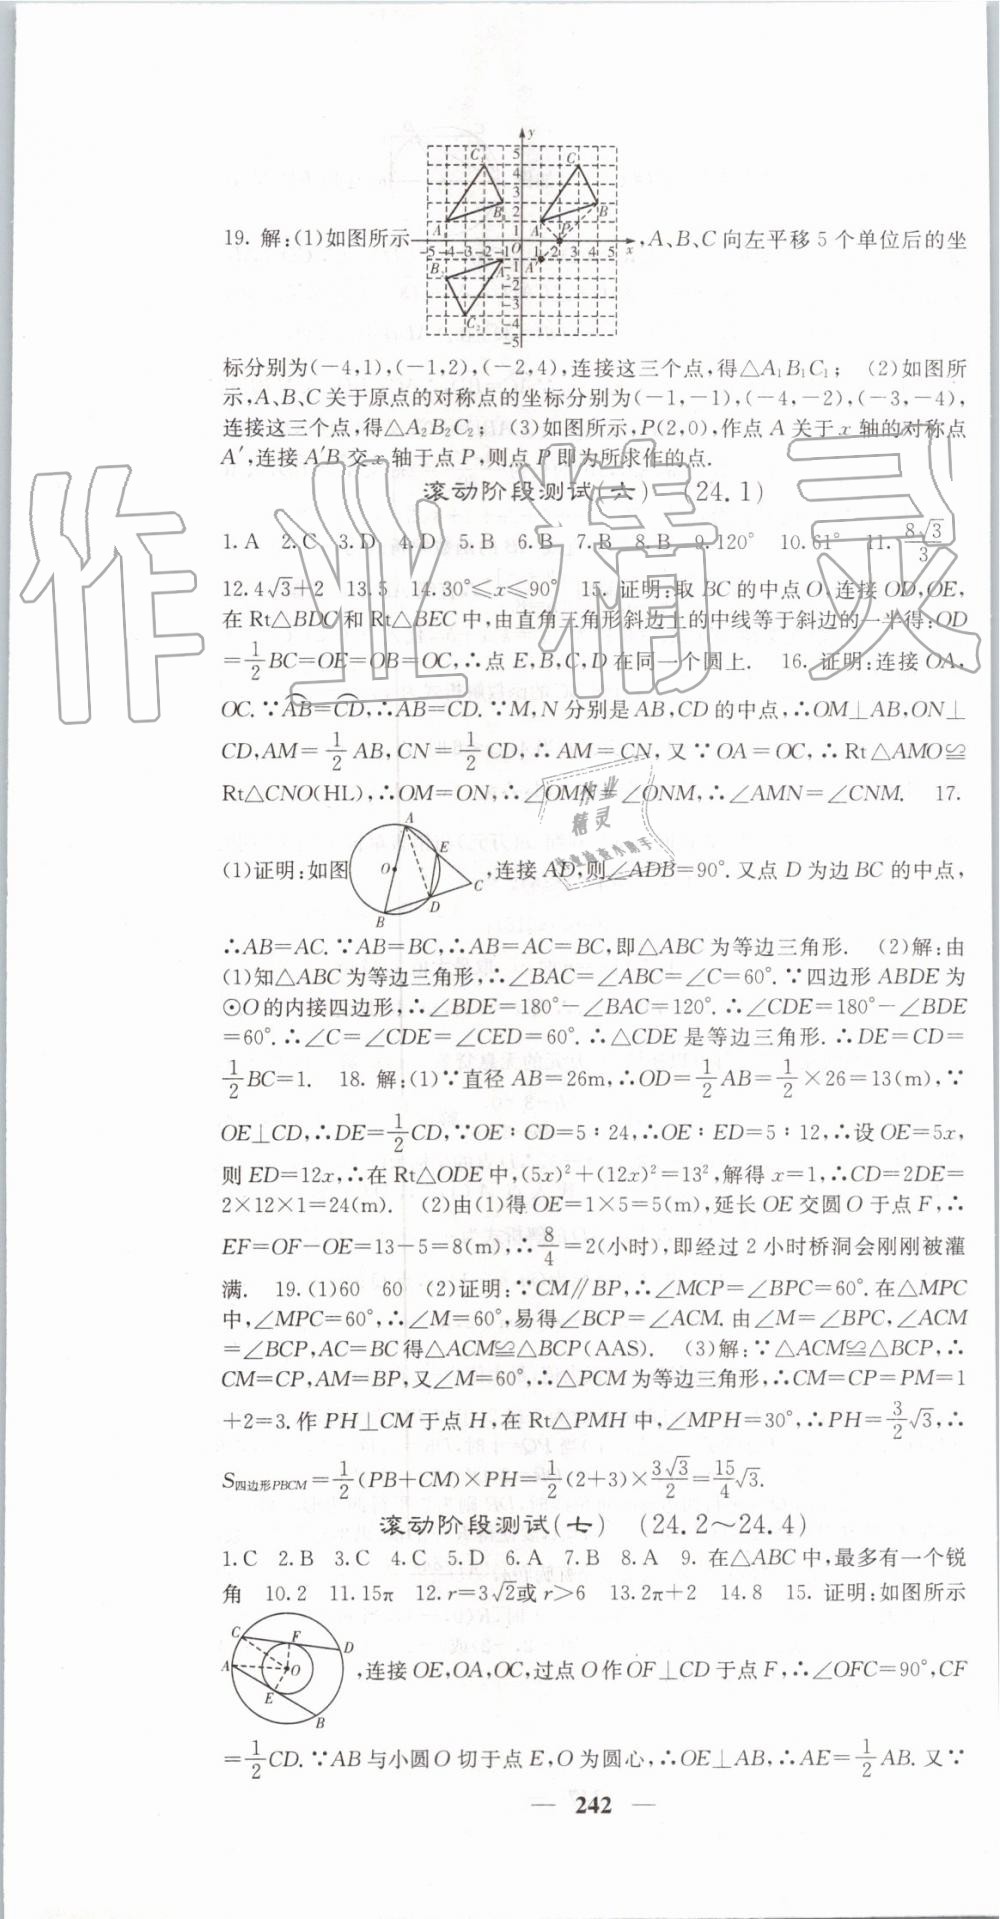 19. 解:(1)如图所示 ,A、B、C 向左平移 5 个单位后的坐
标分别为(-4,1),(-1,2),(-2,4),连接这三个点,得△A₁B₁C₁; (2)如图所
示,A、B、C 关于原点的对称点的坐标分别为(-1,-1),(-4,-2),(-3,-4),
连接这三个点,得△A₂B₂C₂; (3)如图所示,P(2,0),作点 A 关于 x 轴的对称点
A′,连接 A′B 交 x 轴于点 P,则点 P 即为所求作的点.
滚动阶段测试(六) (24.1)
1.A 2.C 3.D 4.D 5.B 6.B 7.B 8.B 9.120° 10.61° 11.8√3/3
12.4√3+2 13.5 14.30°≤x≤90° 15. 证明:取 BC 的中点 O,连接 OD,OE,
在 Rt△BDC 和 Rt△BEC 中,由直角三角形斜边上的中线等于斜边的一半得:OD
=1/2BC=OE=OB=OC,∴点 E,B,C,D 在同一个圆上. 16. 证明:连接 OA,
OC.∵A͡B=C͡D,∴AB=CD.∵M,N 分别是 AB,CD 的中点,∴OM⊥AB,ON⊥
CD,AM=1/2AB,CN=1/2CD,∴AM=CN,又∵OA=OC,∴Rt△AMO≌
Rt△CNO(HL),∴OM=ON,∴∠OMN=∠ONM,∴∠AMN=∠CNM. 17.
(1)证明:如图 ,连接 AD,则∠ADB=90°.又点 D 为边 BC 的中点,
∴AB=AC.∵AB=BC,∴AB=AC=BC,即△ABC 为等边三角形. (2)解:由
(1)知△ABC 为等边三角形,∴∠BAC=∠ABC=∠C=60°.∵四边形 ABDE 为
⊙O 的内接四边形,∴∠BDE=180°-∠BAC=120°.∴∠CDE=180°-∠BDE
=60°.∴∠C=∠CDE=∠CED=60°.∴△CDE 是等边三角形.∴DE=CD=
1/2BC=1. 18. 解:(1)∵直径 AB=26m,∴OD=1/2AB=1/2×26=13(m),∵
OE⊥CD,∴DE=1/2CD,∵OE∶CD=5∶24,∴OE∶ED=5∶12,∴设 OE=5x,
则 ED=12x,∴在 Rt△ODE 中,(5x)²+(12x)²=13²,解得 x=1,∴CD=2DE=
2×12×1=24(m). (2)由(1)得 OE=1×5=5(m),延长 OE 交圆 O 于点 F,∴
EF=OF-OE=13-5=8(m),∴8/4=2(小时),即经过 2 小时桥洞会刚刚被灌
满. 19.(1)60 60 (2)证明:∵CM∥BP,∴∠MCP=∠BPC=60°.在△MPC
中,∠MPC=60°,∴∠M=60°,易得∠BCP=∠ACM.由∠M=∠BPC,∠ACM
=∠BCP,AC=BC 得△ACM≌△BCP(AAS). (3)解:∵△ACM≌△BCP,∴
CM=CP,AM=BP,又∠M=60°,∴△PCM 为等边三角形,∴CM=CP=PM=1
+2=3.作 PH⊥CM 于点 H,在 Rt△PMH 中,∠MPH=30°,∴PH=3/2√3,∴
S四边形PBCM=1/2(PB+CM)×PH=1/2(2+3)×3√3/2=15/4√3.
滚动阶段测试(七) (24.2~24.4)
1.C 2.B 3.C 4.C 5.D 6.A 7.B 8.A 9. 在△ABC 中,最多有一个锐
角 10.2 11.15π 12.r=3√2或 r>6 13.2π+2 14.8 15. 证明:如图所示
,连接 OE,OA,OC,过点 O 作 OF⊥CD 于点 F,∴∠OFC=90°,CF
=1/2CD.∵AB 与小圆 O 切于点 E,O 为圆心,∴OE⊥AB,∴AE=1/2AB.又∵
— 242 —
作业精灵